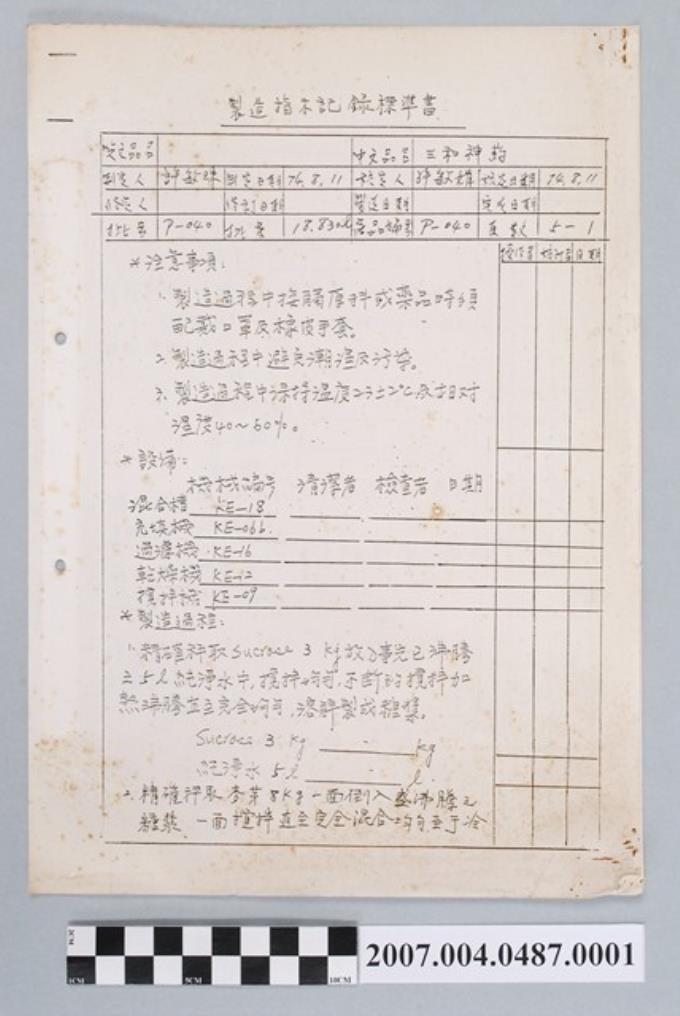 製造指示記錄標準書
英文品名 中文品名 三和神
制定人 許敏 制定日期 76.8.11 核定人 許敏 核定日期 76.8.11
修定人 修訂日期 製造日期 完成日期
批 P-040 批 18.830 P-040 頁數 5-1
操作者 核對者 日期
*注意事項:
1. 製造過程中接觸原料或藥品時須
配戴口罩及橡皮手套。
2. 製造過程中避免潮濕及污染。
3. 製造過程中保持溫度 ±2℃ 相對
濕度40~60%。
*設備:
機械編號 清潔者 檢查者 日期
混合槽 KE-18
充填機 KE-06b.
過濾機 KE-16
乾燥機 KE-12
攪拌機 KE-09
*製造過程:
1. 精確秤取 Sucrose 3 kg 放入事先已沸騰
之 5l 純淨水中,攪拌均勻,不斷的攪拌加
熱沸騰直至完全均勻,溶解製成糖漿。
Sucrose 3 kg kg
純淨水 5l l.
2. 精確秤取 8kg 一面倒入盛沸騰之
糖漿 一面攪拌直至完全混合均勻至于冷
2CM
1CM 5CM 10CM
2007.004.0487.0001